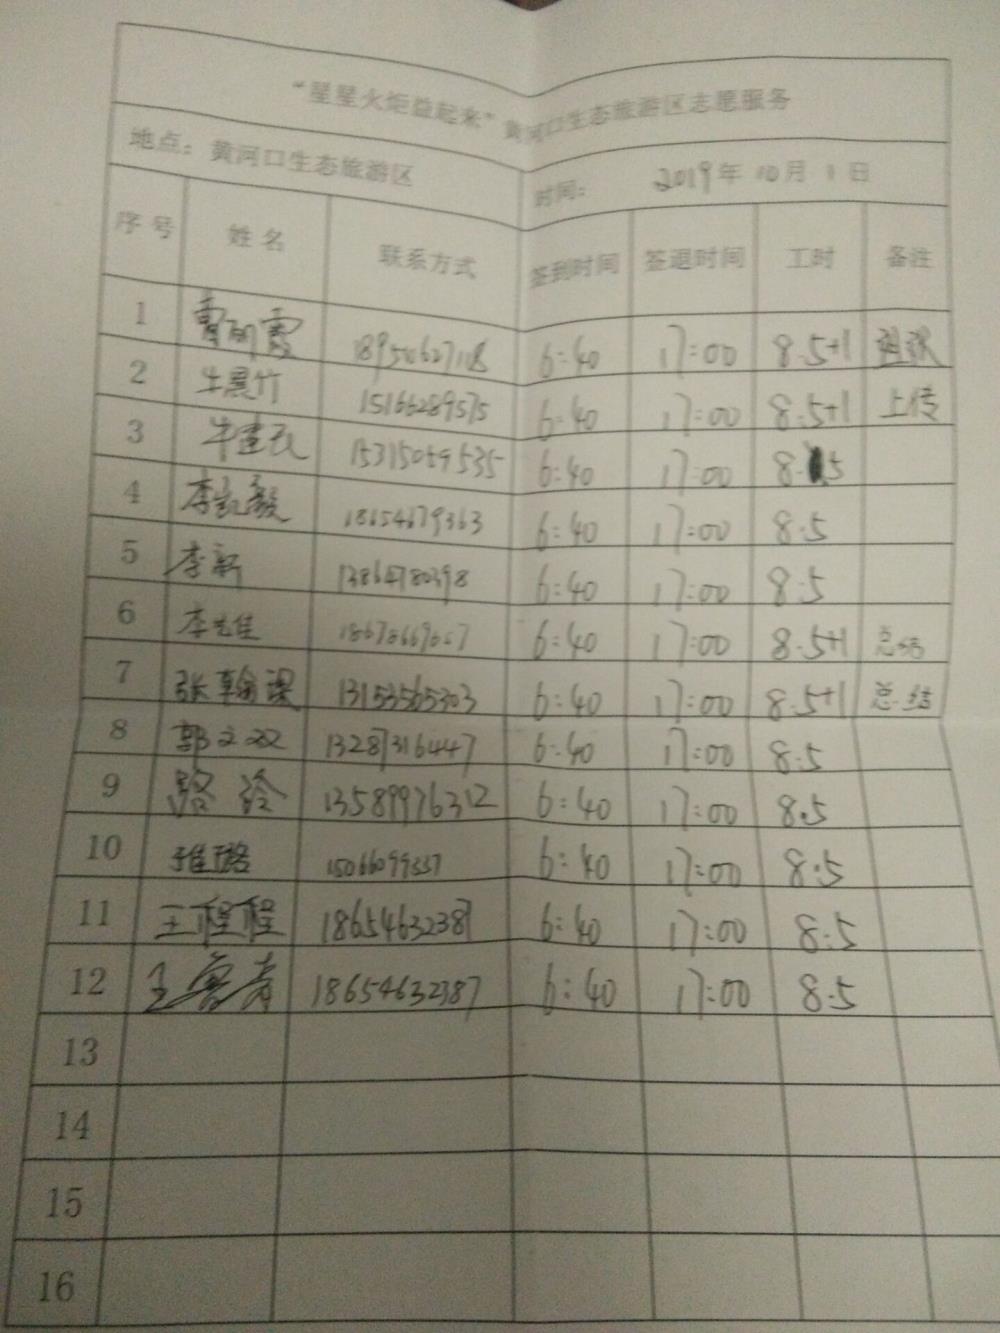 “星星火炬益起来”黄河口生态旅游区志愿服务
地点：黄河口生态旅游区 时间： 2019年10月1日
序号 姓名 联系方式 签到时间 签退时间 工时 备注
1 曹丽霞 6:40 17:00 8.5+1 组织
2 牛晨竹 15166289575 6:40 17:00 8.5+1 上传
3 15315059535 6:40 17:00 8.5
4 李凯毅 18654679363 6:40 17:00 8.5
5 李新 13864780398 6:40 17:00 8.5
6 6:40 17:00 8.5+1 总结
7 张翰谋 13153565303 6:40 17:00 8.5+1 总结
8 郭文双 13287316447 6:40 17:00 8.5
9 路玲 13589976312 6:40 17:00 8.5
10 崔璐 15066099337 6:40 17:00 8.5
11 王程程 18654632387 6:40 17:00 8.5
12 18654632387 6:40 17:00 8.5
13
14
15
16